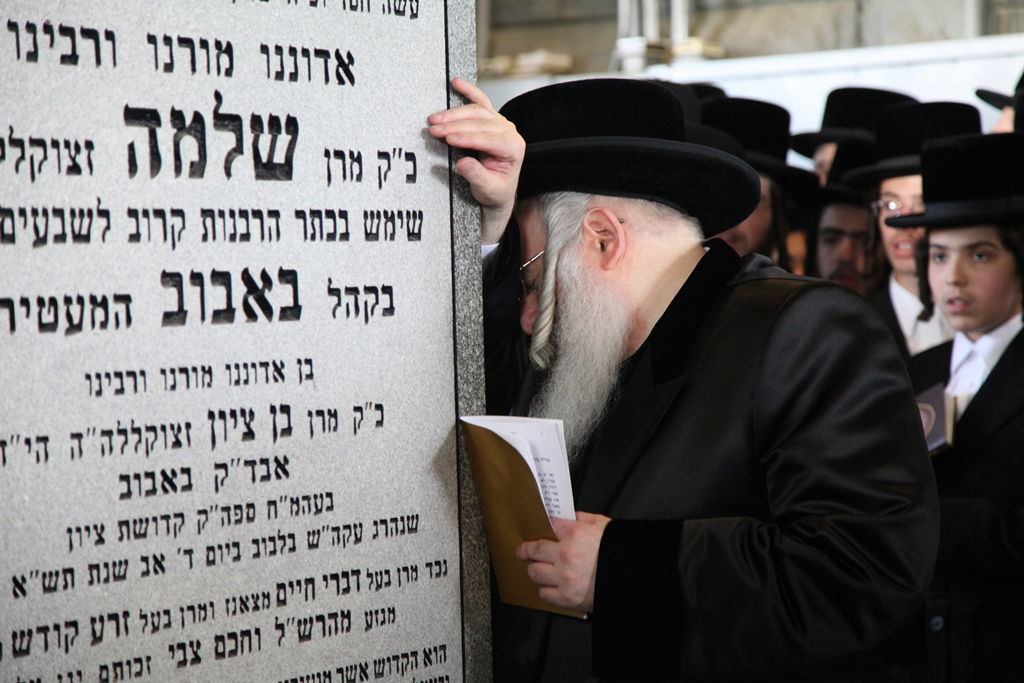 עשה חסד
אדוננו מורנו ורבינו
כ״ק מרן שלמה זצוקלל
שימש בכתר הרבנות קרוב לשבעים
בקהל באבוב המעטיר
בן אדוננו מורנו ורבינו
כ״ק מרן בן ציון זצוקללה״ה הי״ד
אבד״ק באבוב
בעהמ״ח ספה״ק קדושת ציון
שנהרג עקה״ש בלבוב ביום ד׳ אב שנת תש״א
נכד מרן בעל דברי חיים מצאנז ומרן בעל זרע קודש
מגזע מהרש״ל וחכם צבי זכותם
הוא הקדוש אשר